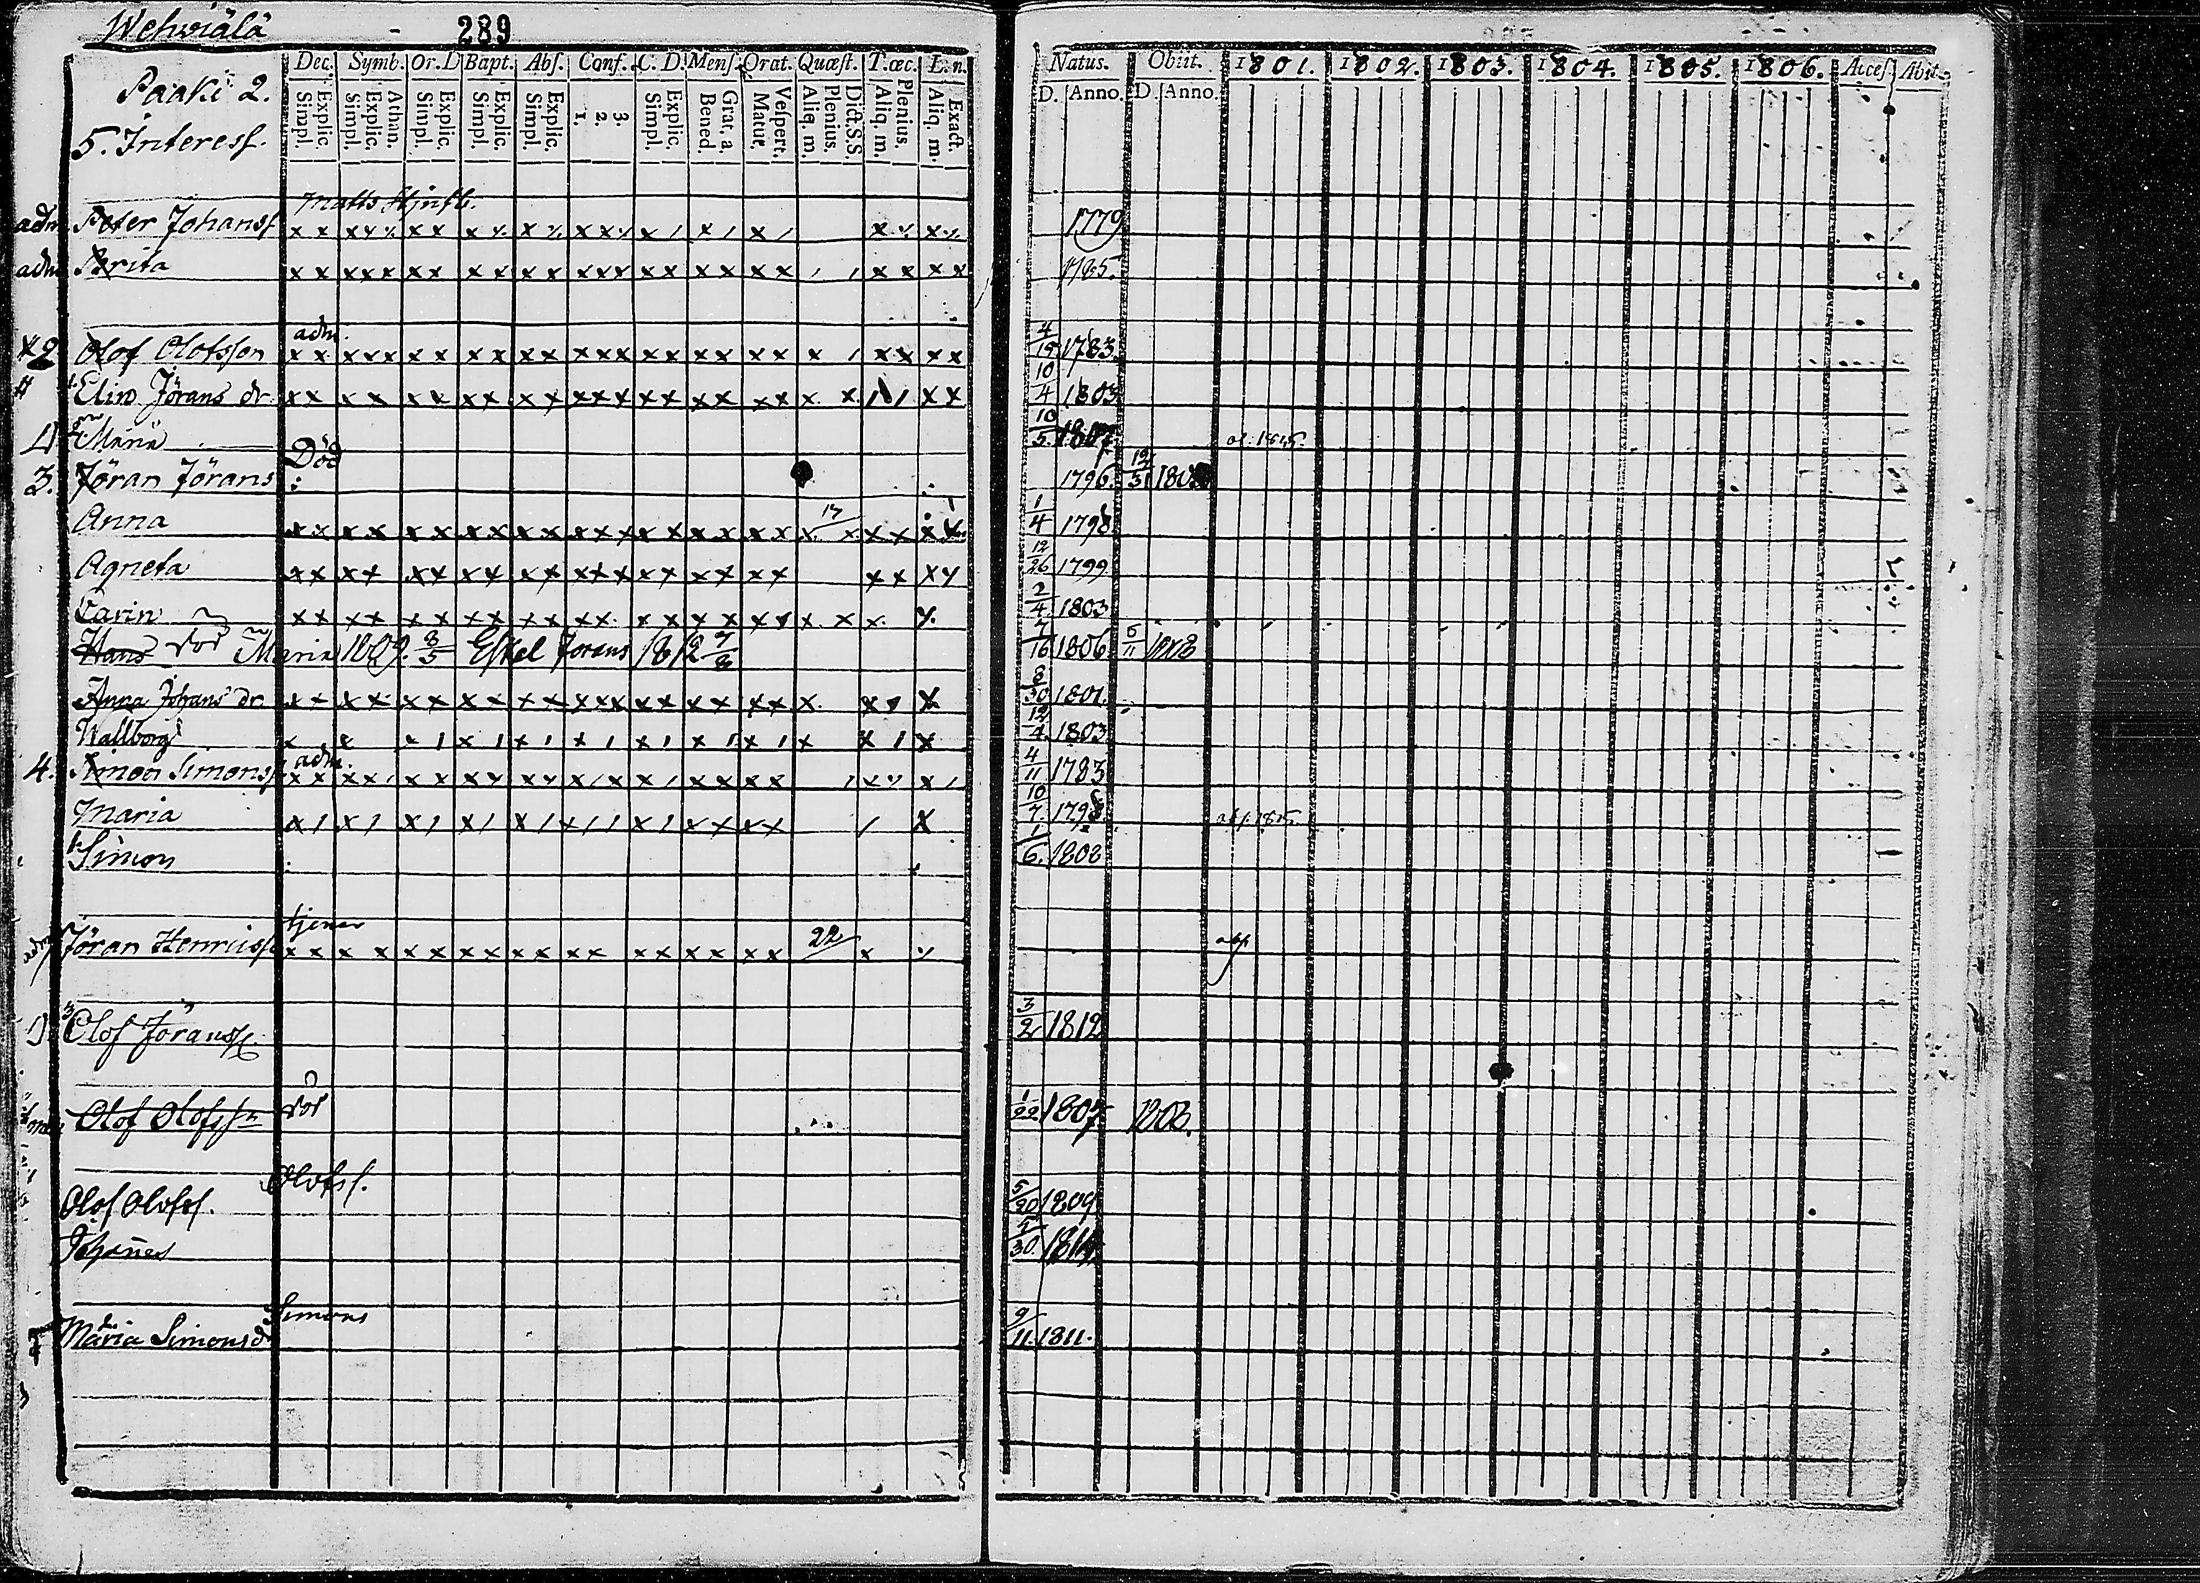 Wehviälä - 289
Paaki 2.
5. Interess.
Dec. Symb. Or. D Bapt. Abs. Conf. C. D. Mens. Orat. Quæst. T. œc. L. n.
Simpl. Explic. Simpl. Explic. Athan. Simpl. Explic. Simpl. Explic. Simpl. Explic. 1. 2. 3. Simpl. Explic. Bened. Grat. a. Matut. Vespert. Aliq. m. Plenius. Dict. S. S. Aliq. m. Plenius. Aliq. m. Exact.
Natus. Obiit. 1801. 1802. 1803. 1804. 1805. 1806. Acces. Abit.
D. Anno. D. Anno.
Matts
adm Peter Johanss. 1779
adm Brita 1785.
adm.
2 Olof Olofsson 4/19 1783
Elin Jörans dr. 10/4 1803
Maria 10/5. 1807.
Död
3. Jöran Jörans 1796
Anna 17 1/4 1798
Agneta 12/26 1799
Carin 2/4 1803
Hans död Maria 1809. 8/5 Eskel Jörans 1812 7/8 7/16 1806. 5/11 1808
Anna Johans dr. 8/30 1801.
Wallborg 12/4. 1803
adm.
4. Simon Simonss. 4/11 1783
Maria 10/7. 1798
Simon 1/6. 1808
tjener
Jöran Henrikss. 22
Olof Jöranss. 3/2 1812
Olof Olofssn död 1/22 1807. 1808.
Olofss.
Olof Olofss. 5/20 1809
Johannes 30. 1814
Simons
Maria Simonsd 9/11. 1811.